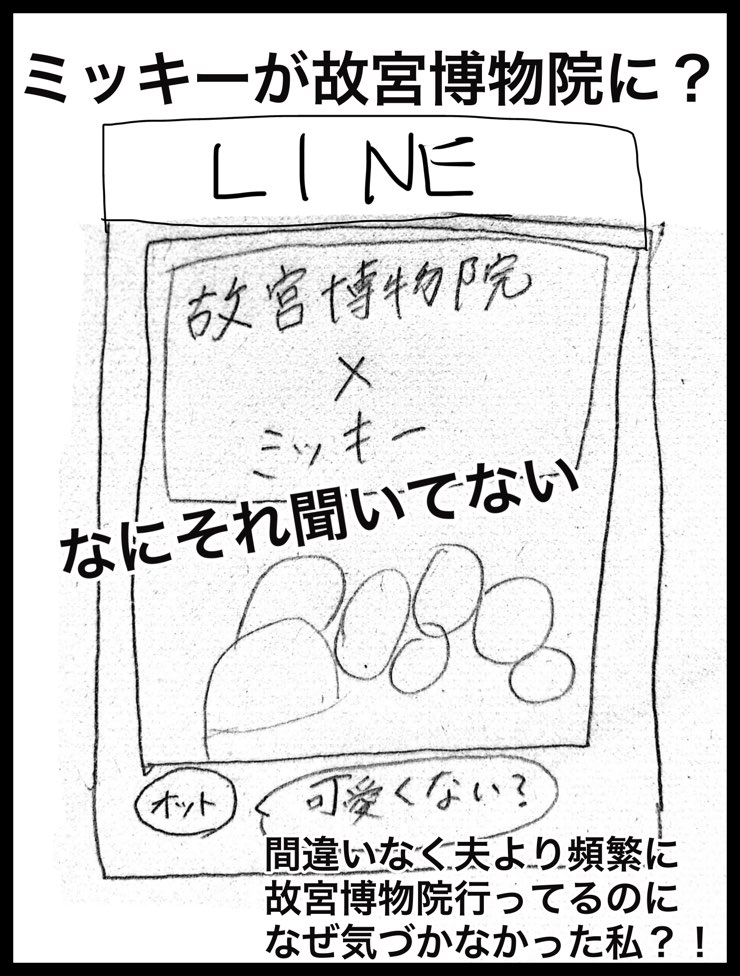 ミッキーが故宮博物院に？
LINE
故宮博物院
×
ミッキー
なにそれ聞いてない
オット
可愛くない？
間違いなく夫より頻繁に
故宮博物院行ってるのに
なぜ気づかなかった私？！